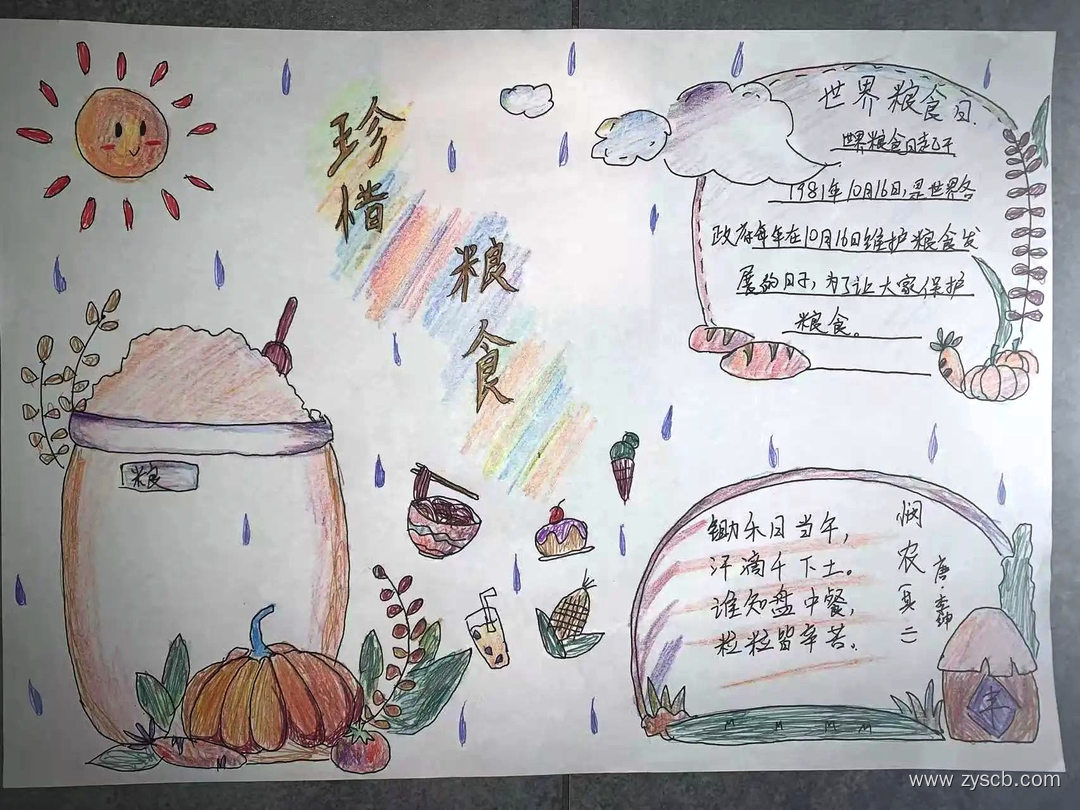 珍惜
粮食
世界粮食日.
世界粮食日起于
1981年10月16日,是世界各
政府每年在10月16日维护粮食发
展的日子,为了让大家保护
粮食。
粮
悯农(其二)
唐·李绅
锄禾日当午,
汗滴禾下土。
谁知盘中餐,
粒粒皆辛苦。
丰
www.zyscb.com